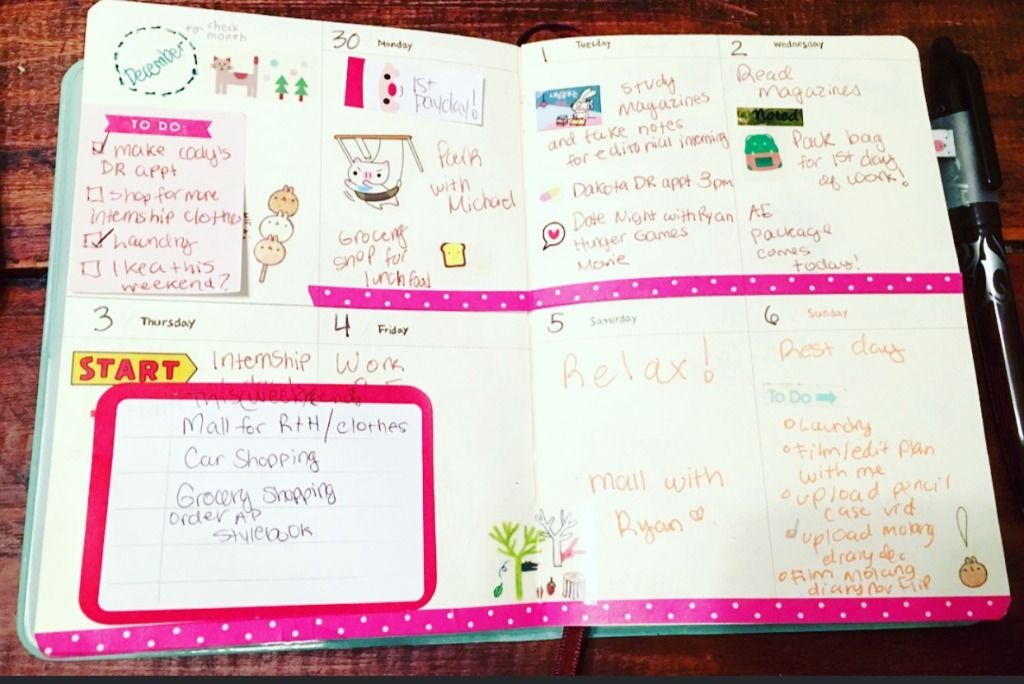 to check
month
December
TO DO:
make Cody's
DR appt
shop for more
internship clothes
Laundry
Ikea this
weekend?
30 Monday
1st
payday!
Park
with
Michael
Grocery
shop for
lunch food
1 Tuesday
Study
magazines
and take notes
for editorial
Dakota DR appt 3pm
Date Night with Ryan
Hunger Games
Movie
2 Wednesday
Read
magazines
Noted
Pack bag
for 1st day
of work!
AE
package
comes
today!
3 Thursday
START
Internship
this weekend?
Mall for RTH/clothes
Car Shopping
Grocery Shopping
order AP
stylebook
4 Friday
Work
5 Saturday
Relax!
mall with
Ryan
6 Sunday
Rest day
To Do
Laundry
Film/edit plan
with me
upload pencil
case vid
upload molang
diary dec
Film molang
diary nov flip